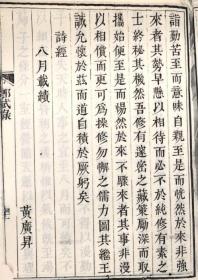 詣勤苦至而意味自親至是而恍然於來非強
來者其勢早懸以相待而必不於純修有素之
士終秘其機然吾修有邃密之藏策勵深而取
攜始便至是而暢然於來不驟來者其事非漫
以相償而更可為操修勿懈之儒力圖其繼王
誠允懷於茲而道自積於厥躬矣
詩經
八月載績
黃廣昇